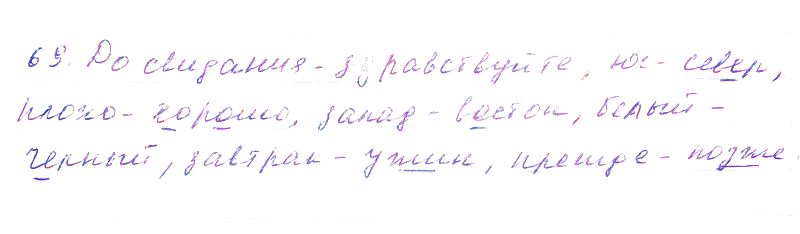 69. До свидания - здравствуйте, юг - север,
плохо - хорошо, запад - восток, белый -
чёрный, завтрак - ужин, прежде - позже.